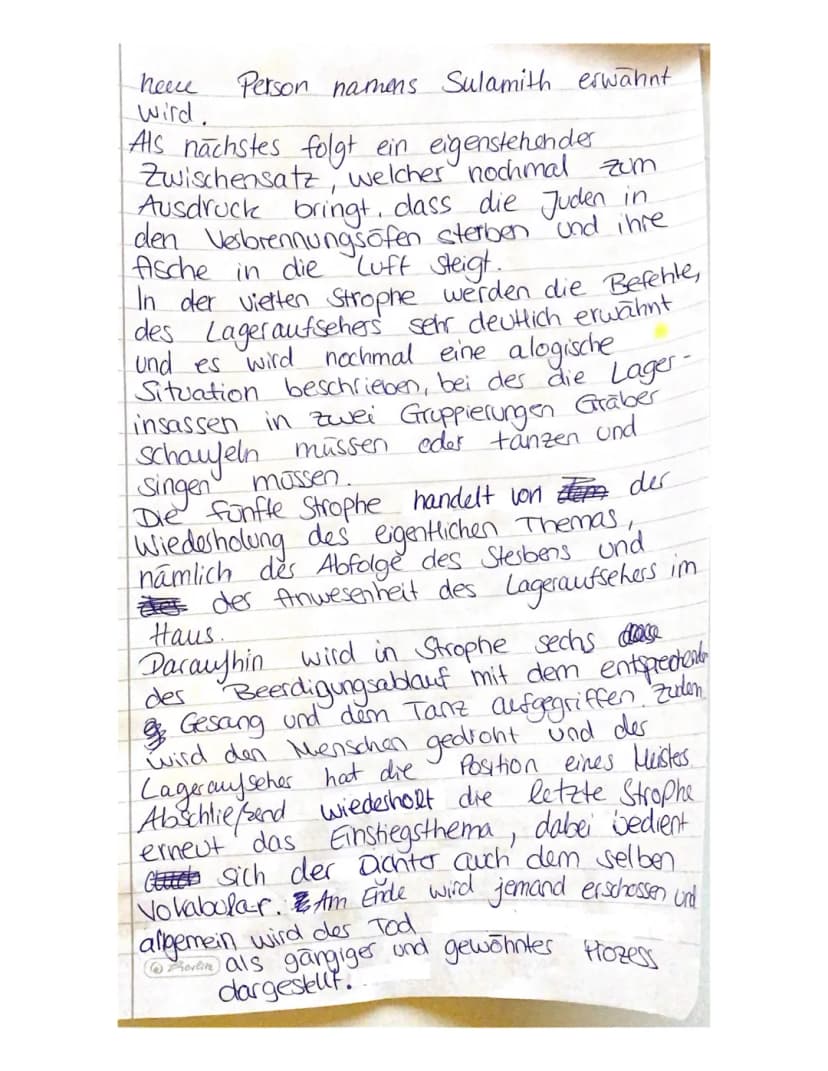 neue Person namens Sulamith erwähnt
wird.
Als nächstes folgt ein eigenstehender
Zwischensatz, welcher nochmal zum
Ausdruck bringt, dass die Juden in
den Verbrennungsöfen sterben und ihre
Asche in die Luft steigt.
In der vierten Strophe werden die Befehle,
des Lageraufsehers sehr deutlich erwähnt
und es wird nochmal eine alogische
Situation beschrieben, bei der die Lager-
insassen in zwei Gruppierungen Gräber
schaufeln müssen oder tanzen und
singen müssen.
Die fünfte Strophe handelt von der
Wiederholung des eigentlichen Themas,
nämlich der Abfolge des Sterbens und
der Anwesenheit des Lageraufsehers im
Haus.
Daraufhin wird in Strophe sechs
der Beerdigungsablauf mit dem
Gesang und dem Tanz aufgegriffen. Zudem
wird den Menschen gedroht und der
Lageraufseher hat die Position eines Meisters.
Abschließend wiederholt die letzte Strophe
erneut das Einstiegsthema, dabei bedient
sich der Dichter auch dem selben
Vokabular. Am Ende wird jemand erschossen und
allgemein wird der Tod
als gängiger und gewöhntes Prozess
dargestellt.